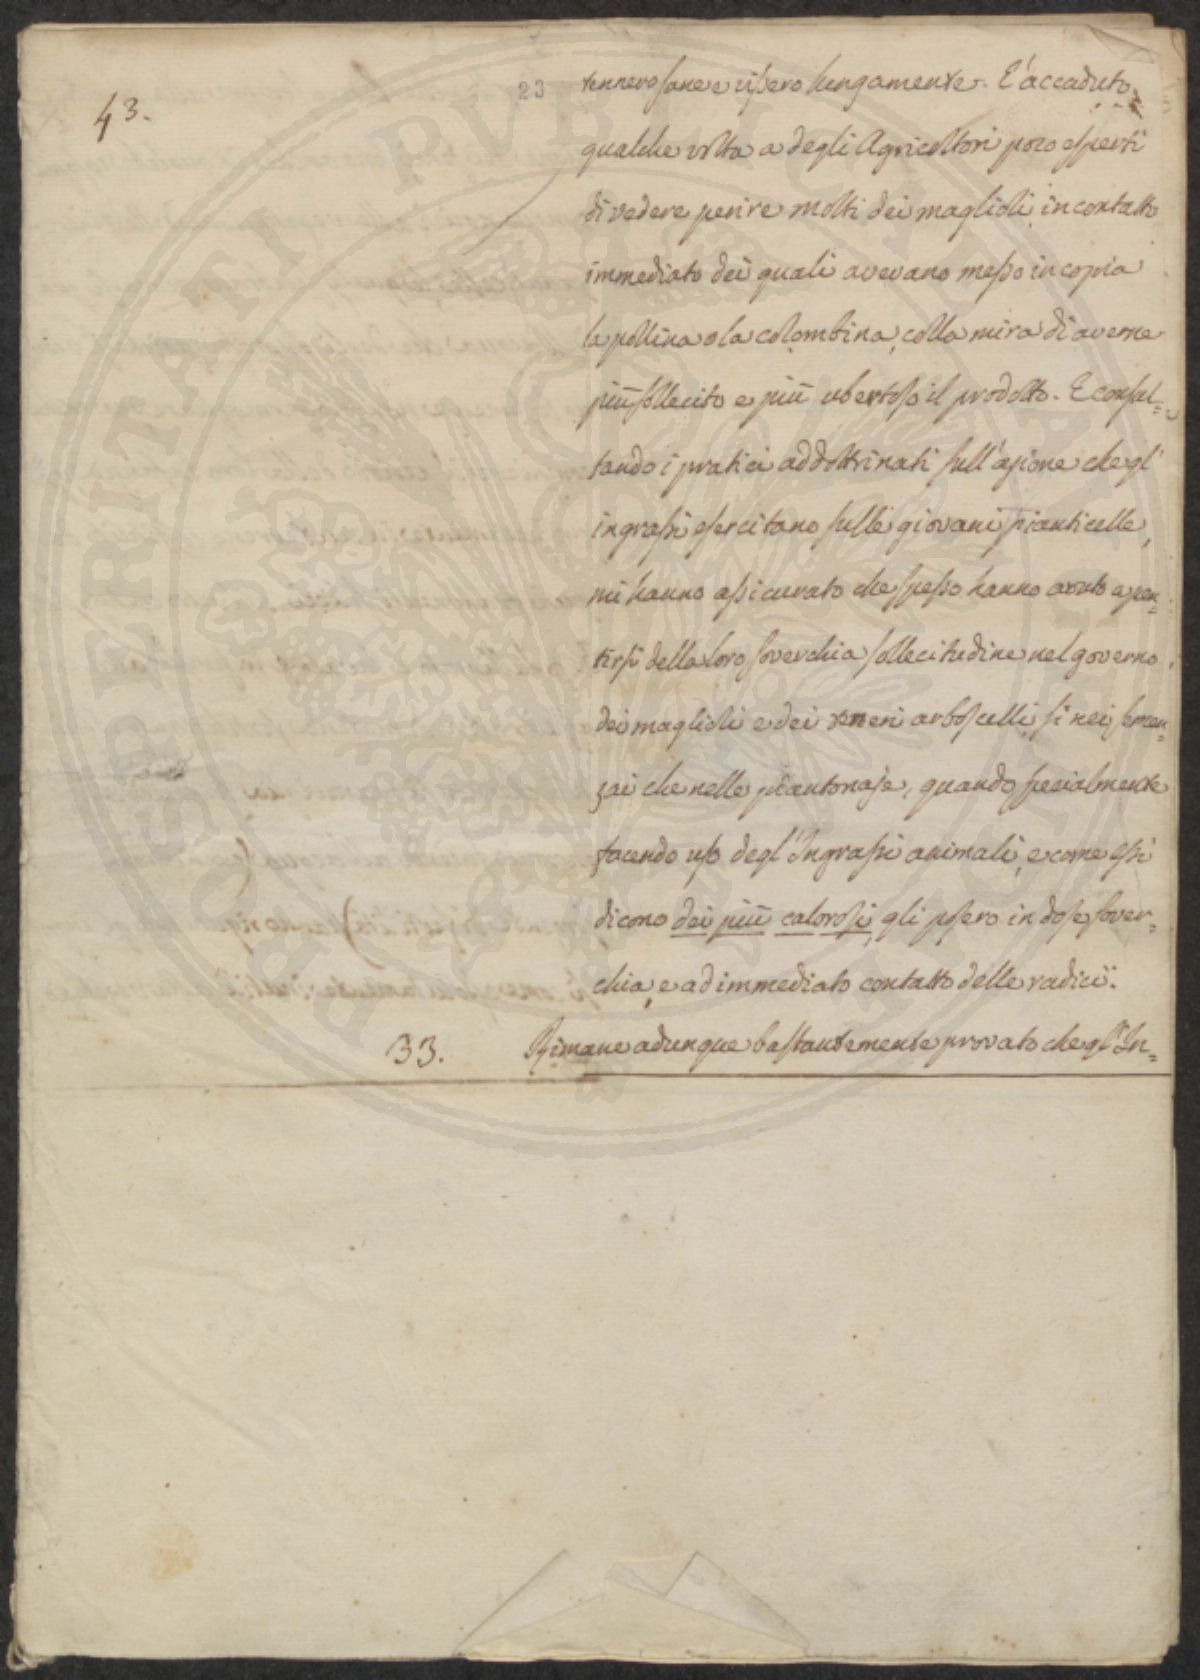 43.
23
tennero sane e vissero lungamente. E' accaduto
qualche volta a degli Agricoltori poco esperti
di vedere perire molti dei maglioli, in contatto
immediato dei quali avevano messo in copia
la pollina o la colombina, colla mira di averne
più sollecito e più ubertoso il prodotto. E consul=
tando i pratici addottrinati sull'azione che gl'
ingrassi esercitano sulle giovani pianticelle,
mi hanno assicurato che spesso hanno avuto a pen=
tirsi della loro soverchia sollecitudine nel governo
dei maglioli e dei teneri arboscelli, sì nei semen=
zai che nelle piantonaje, quando specialmente
facendo uso degl'Ingrassi animali, e come essi
dicono dei più calorosi, gli posero in dose sover=
chia, e ad immediato contatto delle radici.
33. Rimane adunque bastantemente provato che gl'In=
PROSPERITATI PVBLICAE